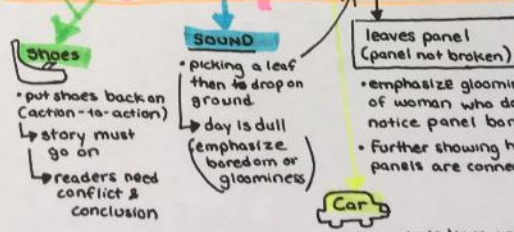 shoes
• put shoes back on
(action-to-action)
↳ story must
go on
↳ readers need
conflict &
conclusion
SOUND
• picking a leaf
then to drop on
ground
↳ day is dull
(emphasize
boredom or
gloominess)
leaves panel
(panel not broken)
• emphasize
of woman who
notice panel
• Further showing
panels are
Car